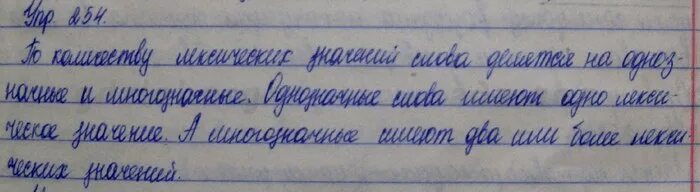 Упр. 254.
По количеству лексических значений слова делятся на одноз-
начные и многозначные. Однозначные слова имеют одно лекси-
ческое значение. А многозначные имеют два или более лекси-
ческих значений.